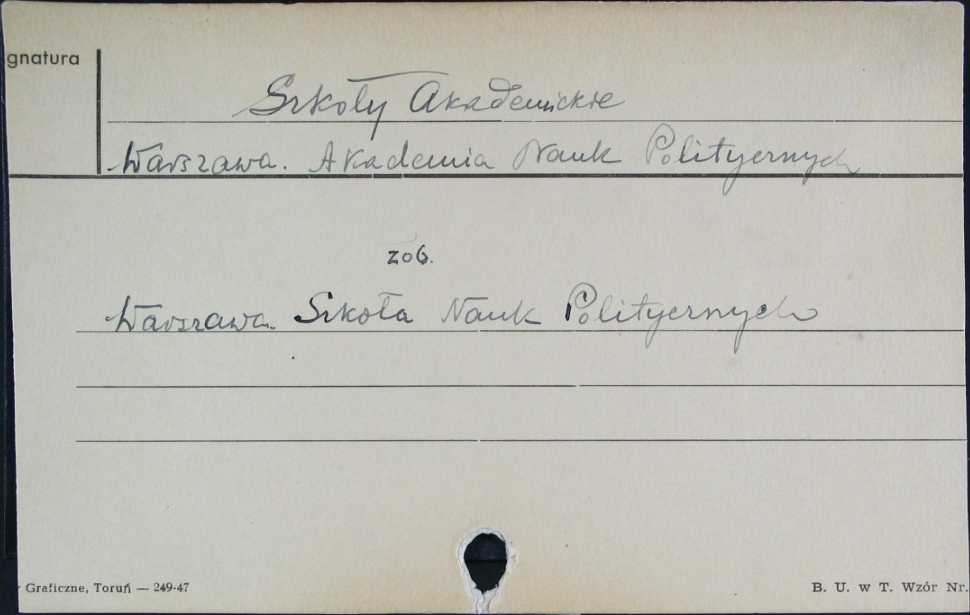 gnatura
Szkoły Akademickie
Warszawa. Akademia Nauk Politycznych
zob.
Warszawa. Szkoła Nauk Politycznych
Graficzne, Toruń — 249-47
B. U. w T. Wzór Nr.